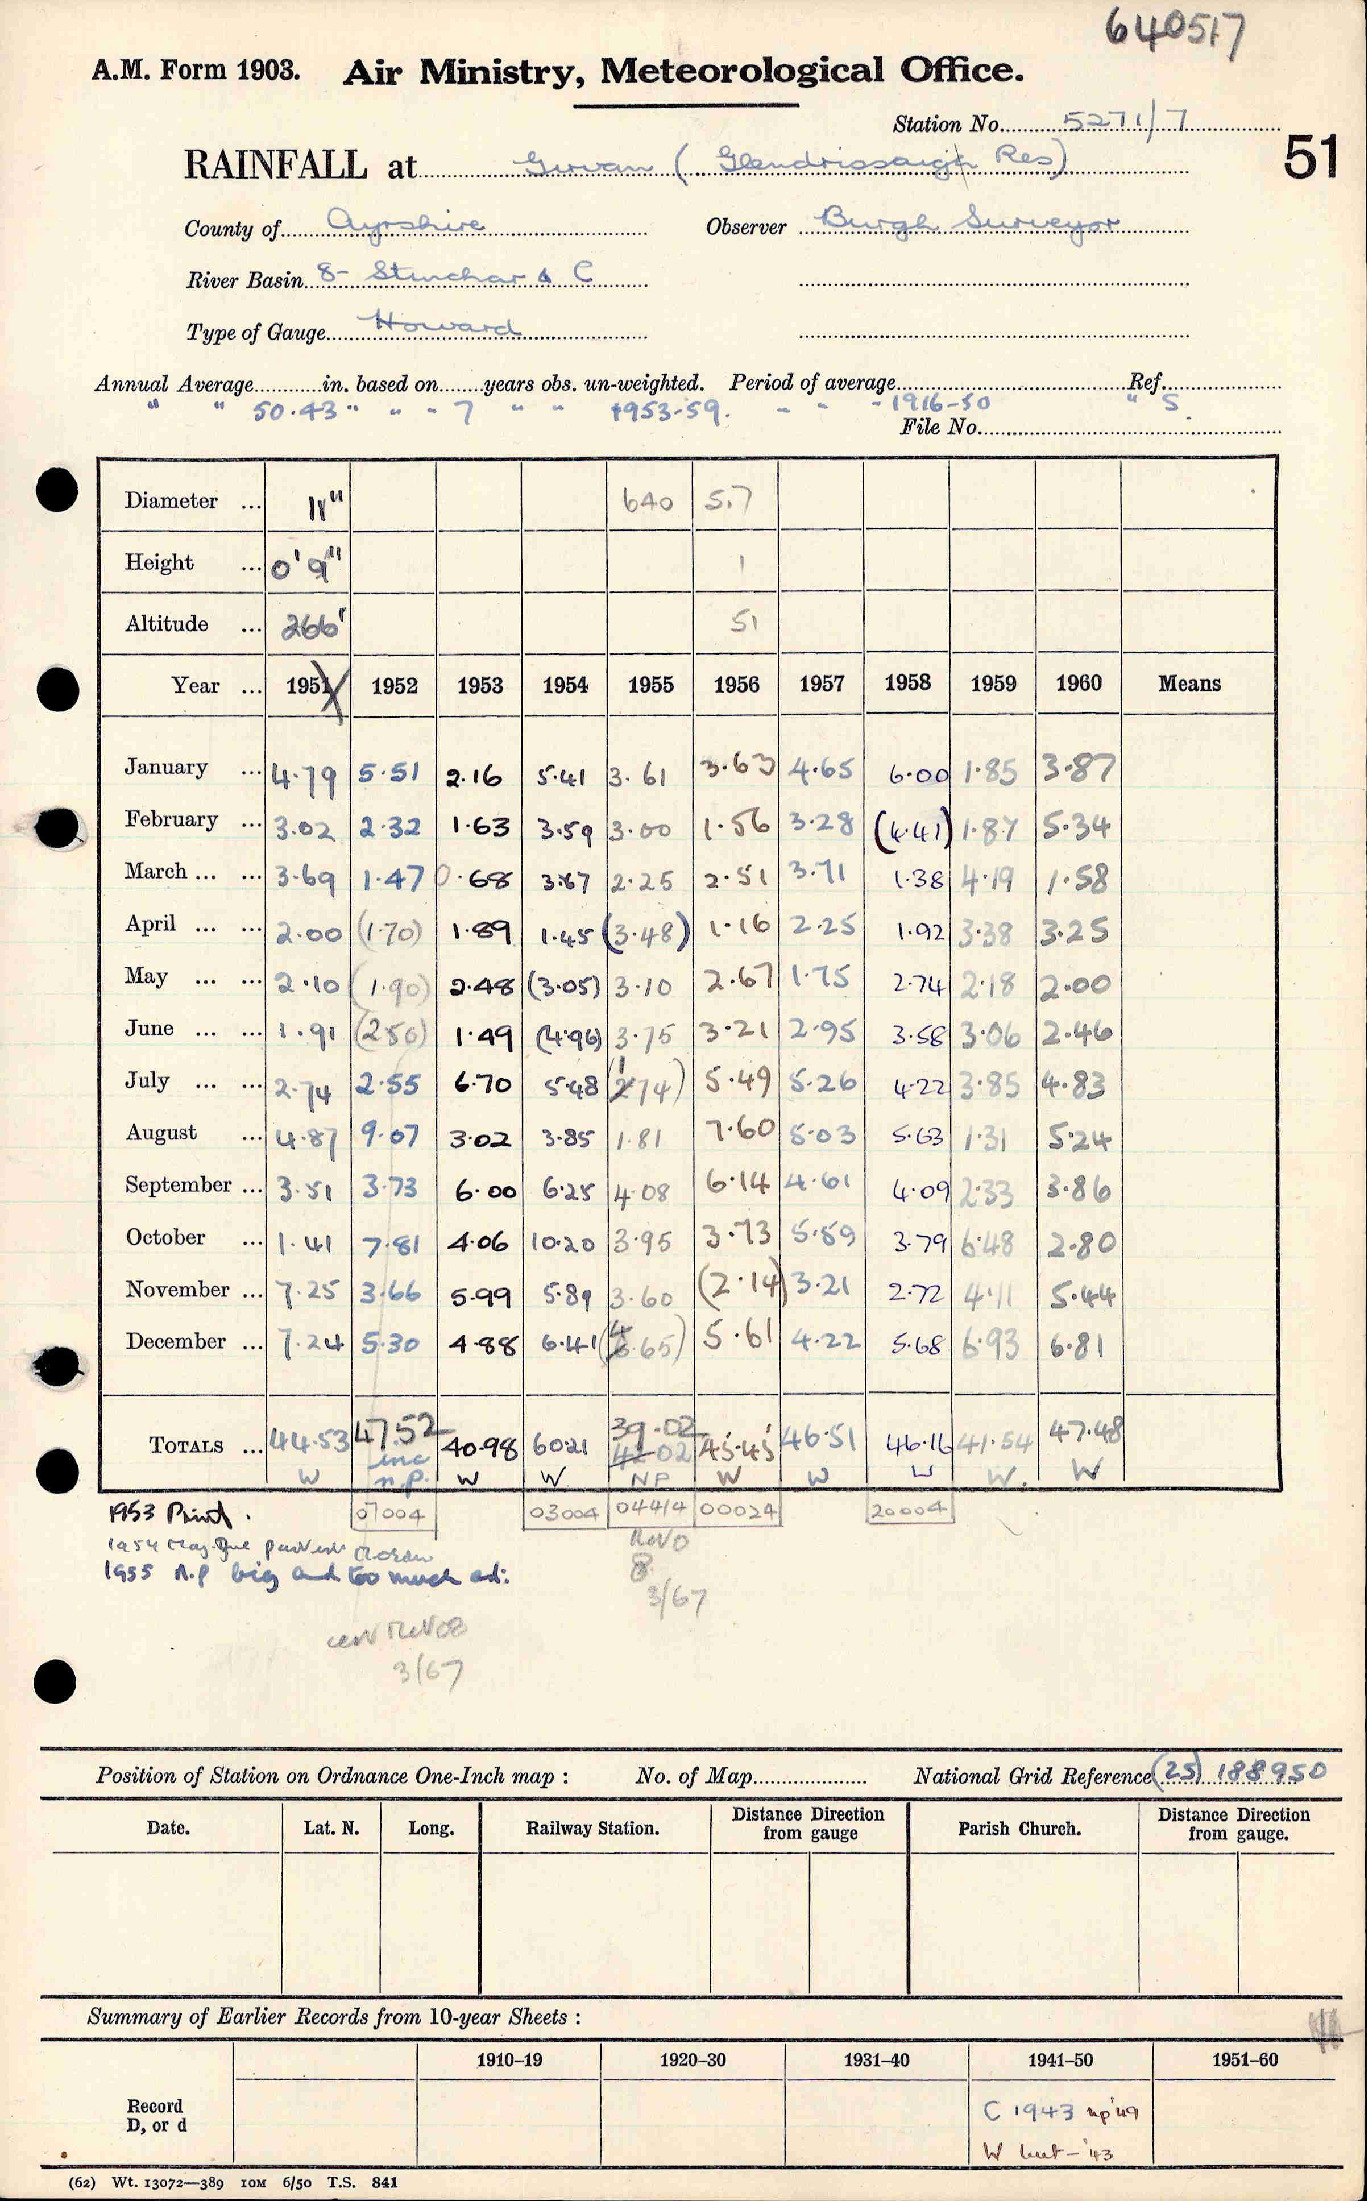 640517
A.M. Form 1903. Air Ministry, Meteorological Office.
Station No. 5271/7
51
RAINFALL at Girvan (Glendrissaigh Res)
County of Ayrshire Observer Burgh Surveyor
River Basin 8- Stinchar & C
Type of Gauge Howard
Annual Average in. based on years obs. un-weighted. Period of average Ref.
" " 50.43 " " " 7 " " 1953-59. " " " 1916-50 " S.
File No.
Diameter ... 11" 640 5.7
Height ... 0' 9" 1
Altitude ... 266' 51
Year ... 1951 1952 1953 1954 1955 1956 1957 1958 1959 1960 Means
January ... 4.79 5.51 2.16 5.41 3.61 3.63 4.65 6.00 1.85 3.87
February ... 3.02 2.32 1.63 3.59 3.00 1.56 3.28 (4.41) 1.87 5.34
March ... ... 3.69 1.47 0.68 3.67 2.25 2.51 3.71 1.38 4.19 1.58
April ... ... 2.00 (1.70) 1.89 1.45 (3.48) 1.16 2.25 1.92 3.38 3.25
May ... ... 2.10 (1.90) 2.48 (3.05) 3.10 2.67 1.75 2.74 2.18 2.00
June ... ... 1.91 (2.50) 1.49 (4.96) 3.75 3.21 2.95 3.58 3.06 2.46
July ... ... 2.74 2.55 6.70 5.48 (1.74) 5.49 5.26 4.22 3.85 4.83
August ... 4.87 9.07 3.02 3.85 1.81 7.60 5.03 5.63 1.31 5.24
September ... 3.51 3.73 6.00 6.25 4.08 6.14 4.61 4.09 2.33 3.86
October ... 1.41 7.81 4.06 10.20 3.95 3.73 5.59 3.79 6.48 2.80
November ... 7.25 3.66 5.99 5.89 3.60 (2.14) 3.21 2.72 4.11 5.44
December ... 7.24 5.30 4.88 6.41 (4.65) 5.61 4.22 5.68 6.93 6.81
39.02
TOTALS ... 44.53 47.52 40.98 60.21 41.02 45.45 46.51 46.16 41.54 47.48
W inc n.p. W W NP W W W W. W
07004 03004 04414 00024 20004
1953 Print.
1954 May
1955 n.p big and too much ad:
Rev0
8
3/67
Rev 08
3/67
Position of Station on Ordnance One-Inch map : No. of Map National Grid Reference (25) 188950
Date. Lat. N. Long. Railway Station. Distance Direction from gauge Parish Church. Distance Direction from gauge.
Summary of Earlier Records from 10-year Sheets :
1910–19 1920–30 1931–40 1941–50 1951–60
Record
D, or d
C 1943 np '49
W but - '43
(62) Wt. 13072—389 10M 6/50 T.S. 841